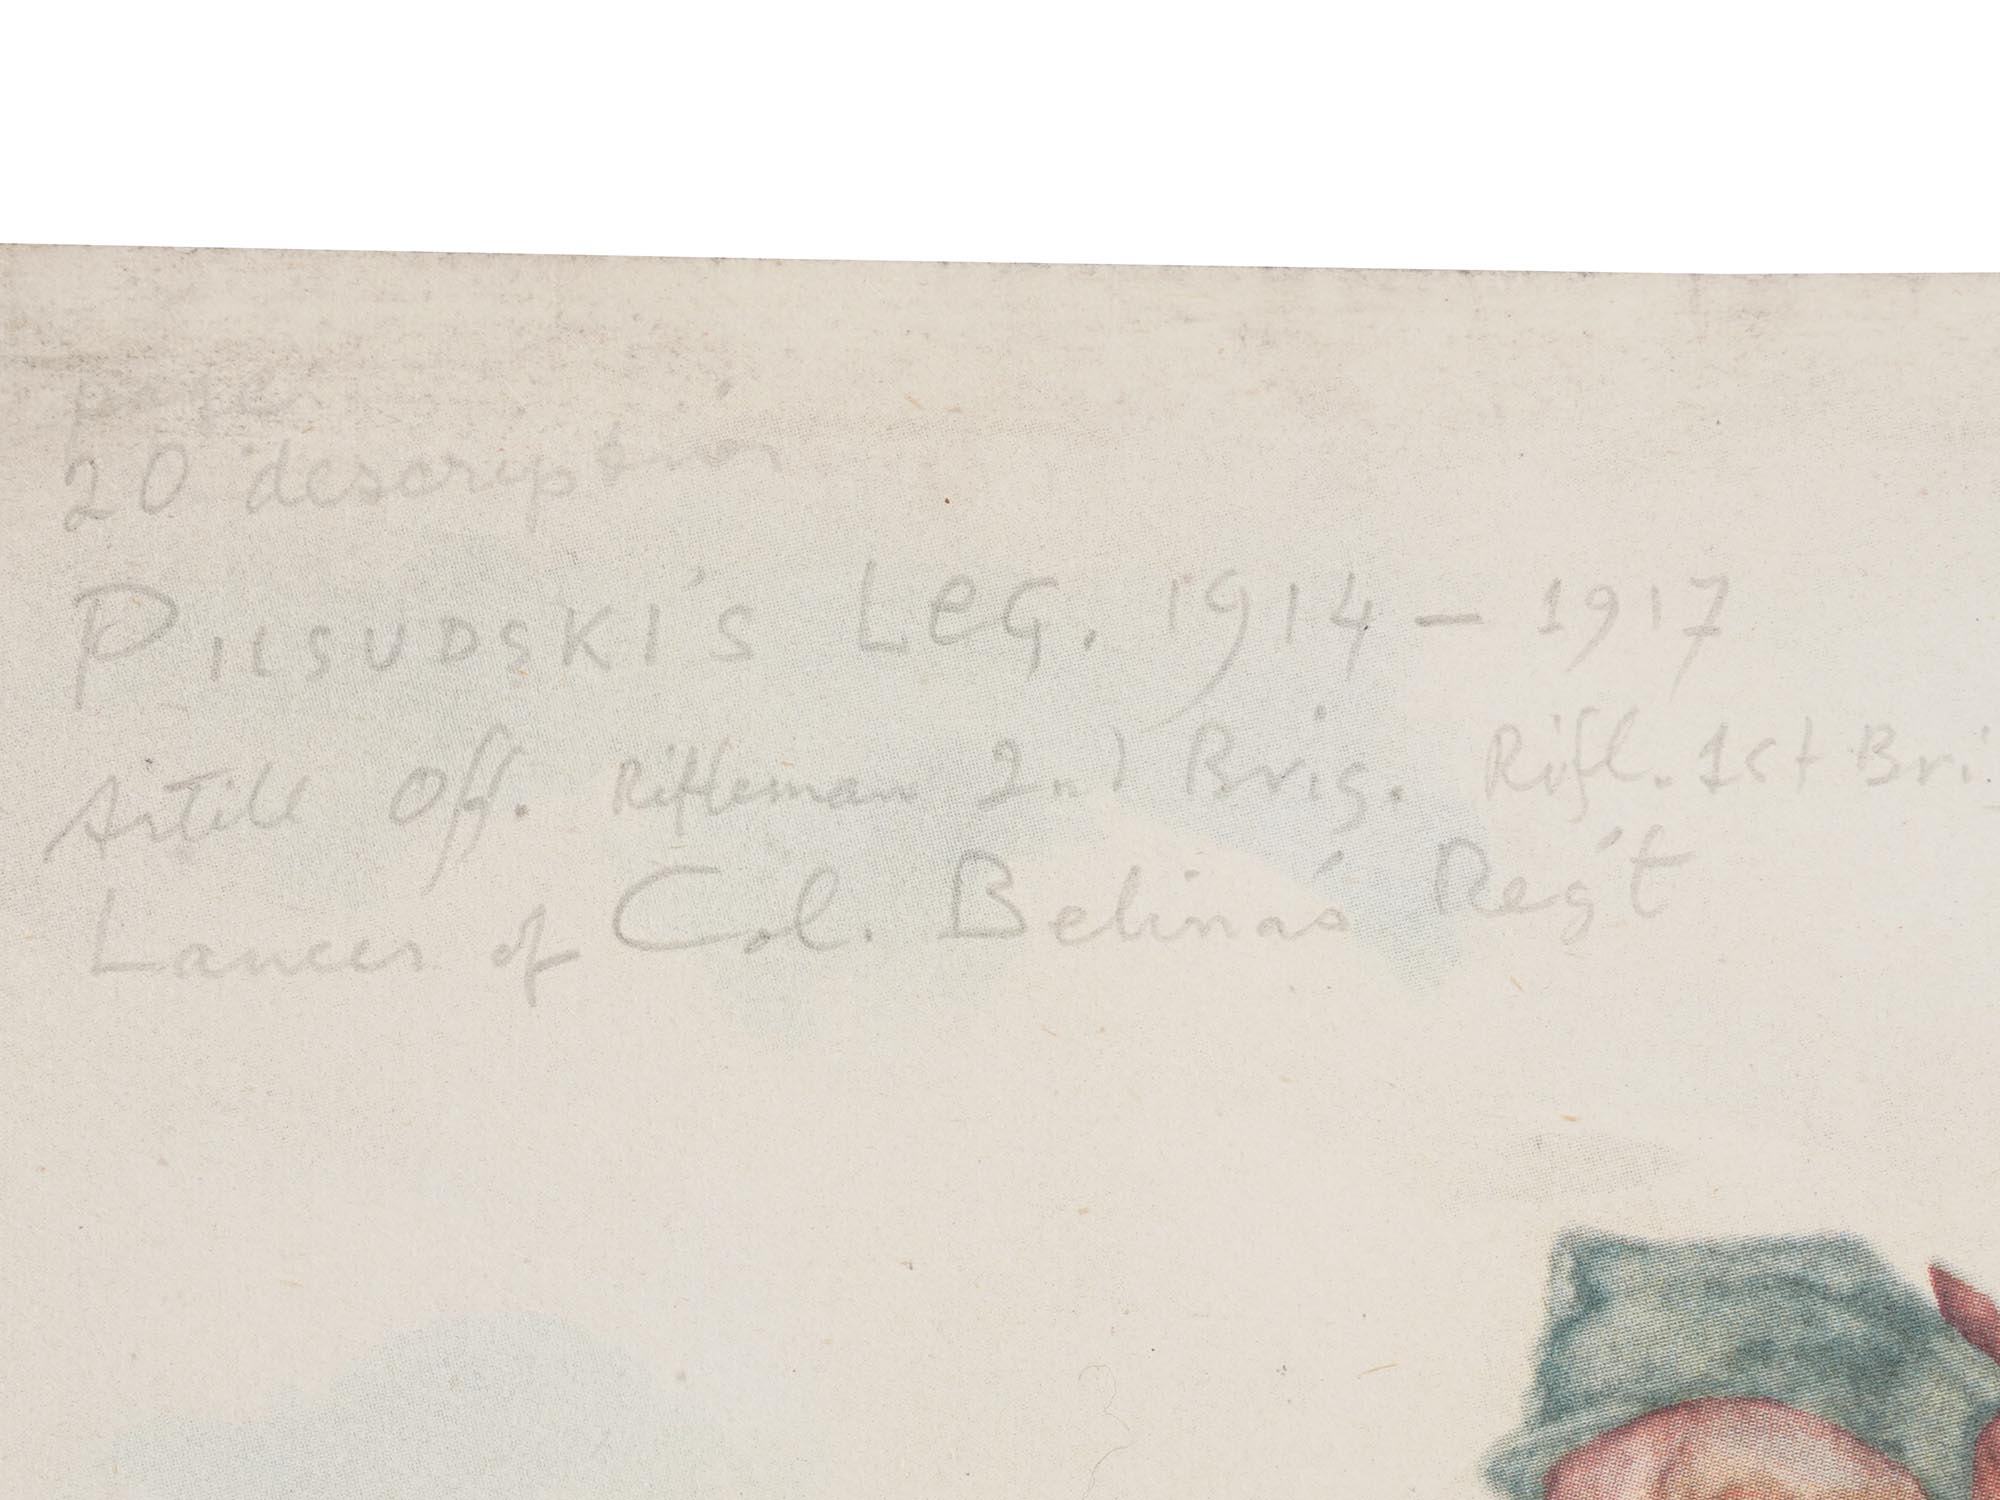 page
20 description
PILSUDSKI'S LEG. 1914 – 1917
Artill Off. Rifleman 2nd Brig. Rifl. 1st Bri
Lancer of Col. Belina's Reg't